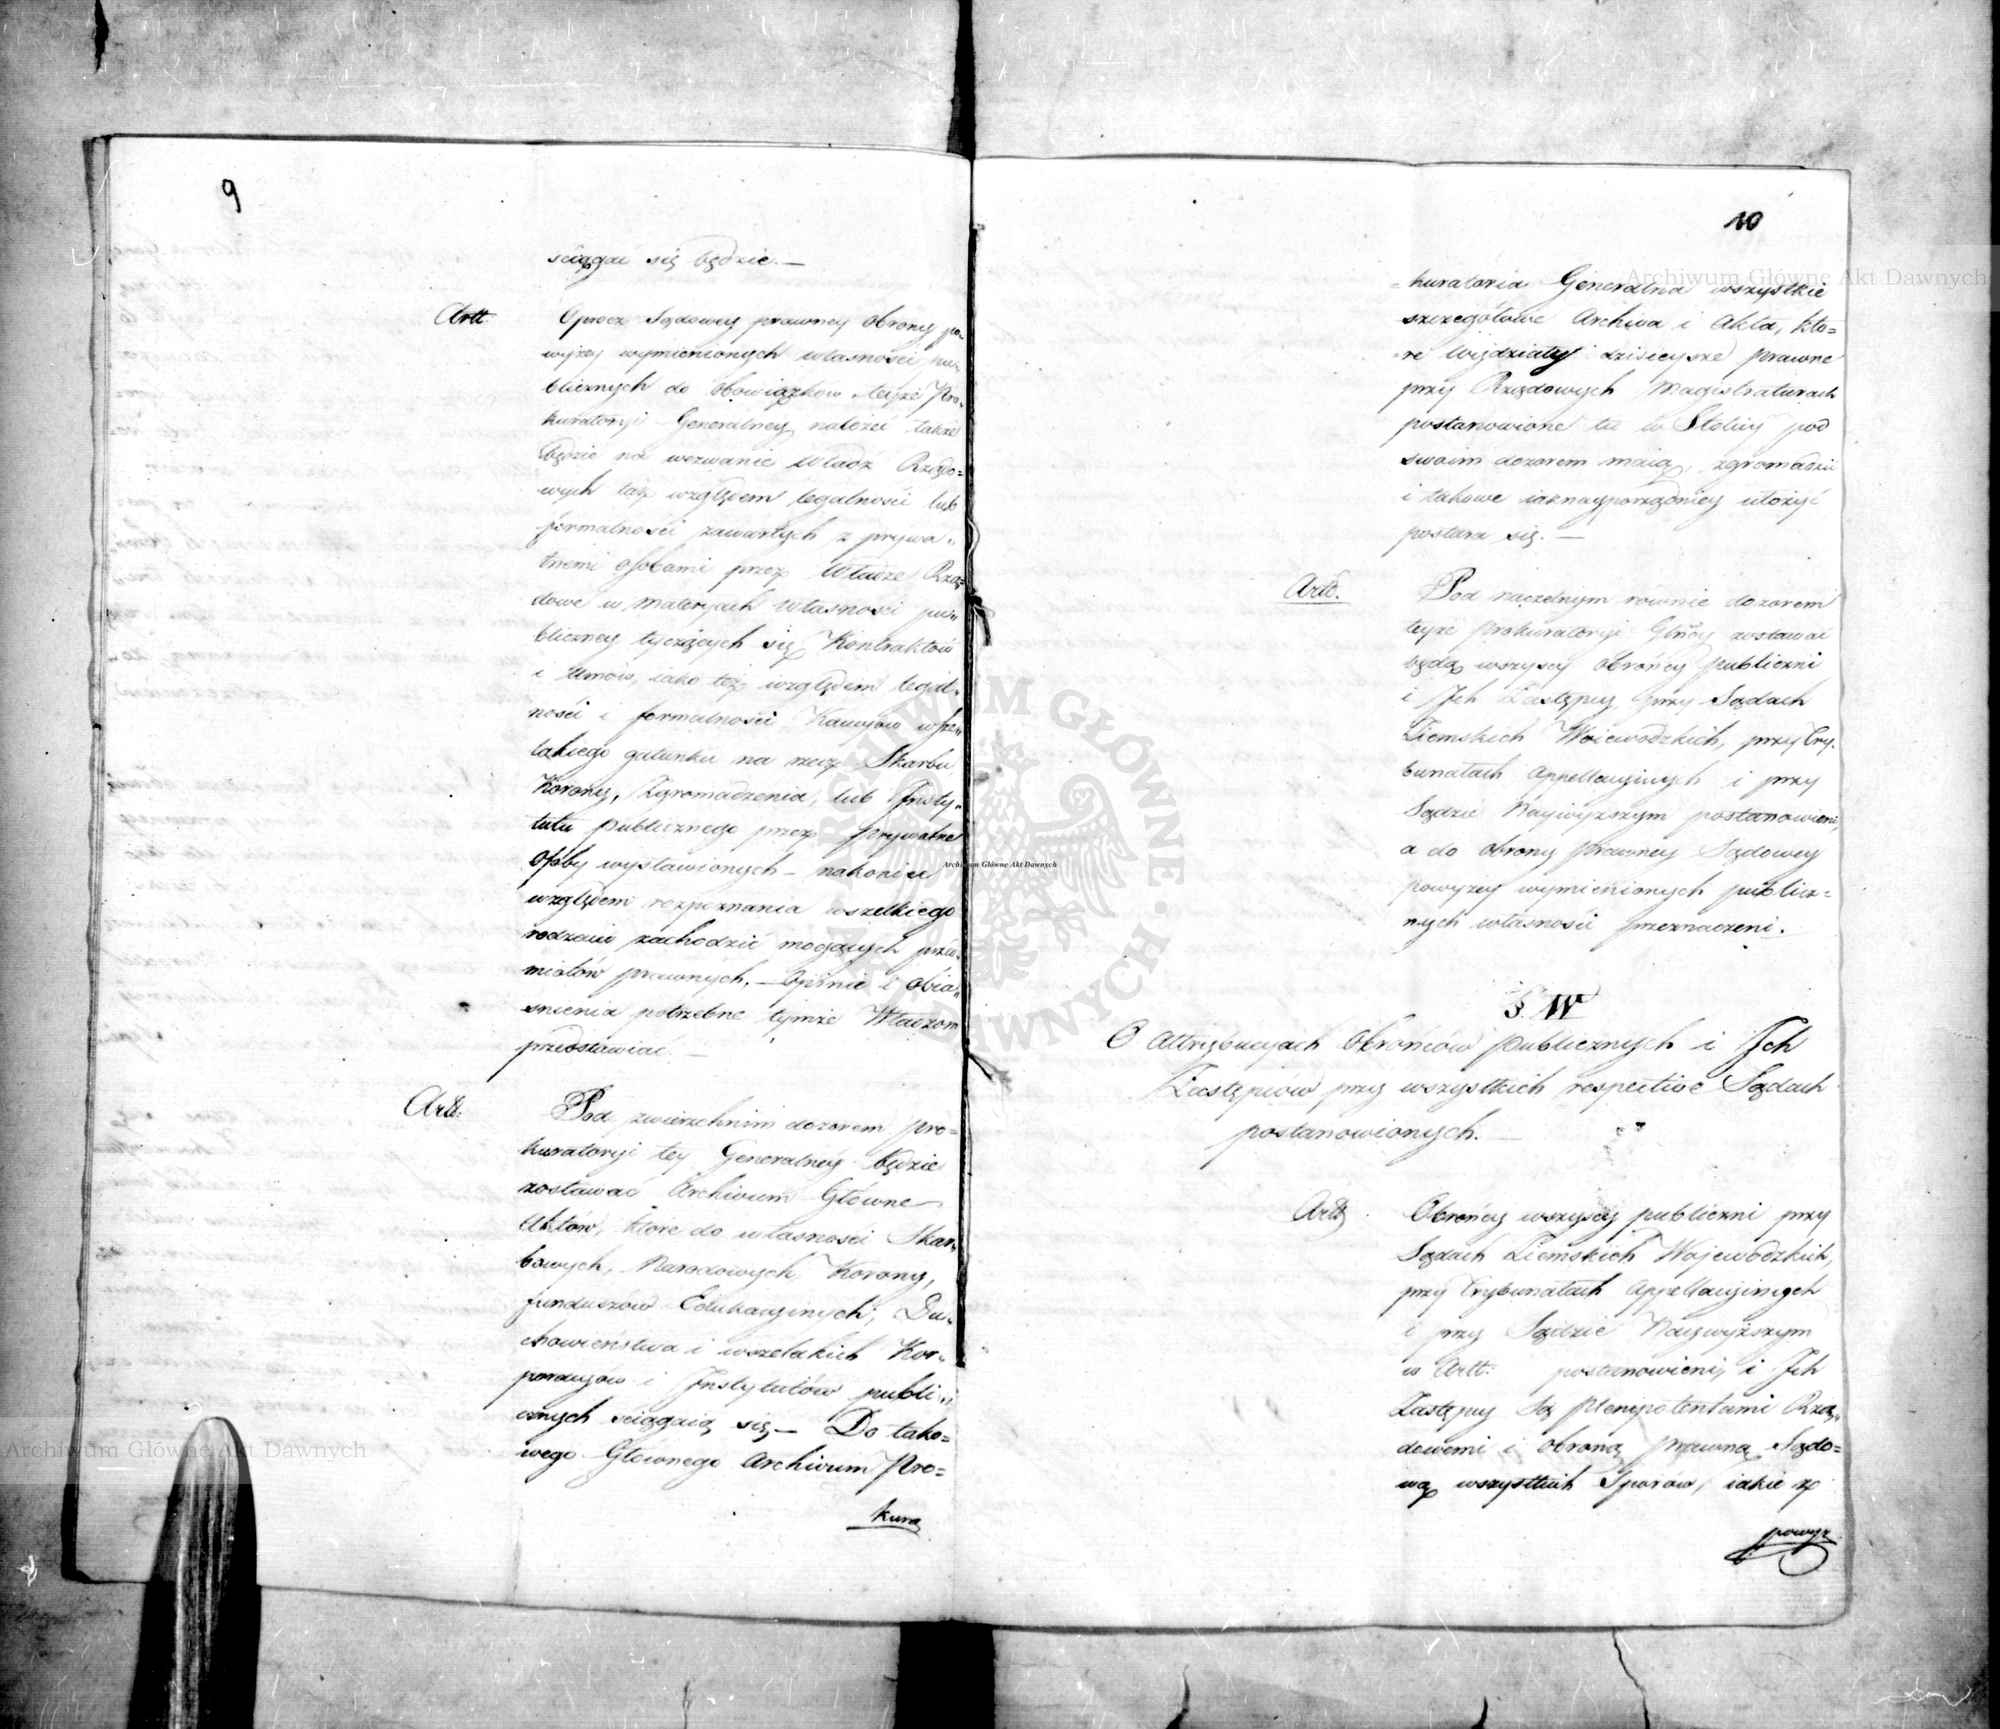 9
ściągać się będzie. —
Artt. Oprocz Sądowey prawney obrony po-
wyżey wymienionych własności pu-
blicznych do obowiązkow teyże Pro-
kuratoryi Generalney należeć także
będzie na wezwanie Władz Rządo=
wych tak względem legalności lub
formalności zawartych z prywa-
tnemi osobami przez Władze Rzą-
dowe w materyach własności pu-
bliczney tyczących się Kontraktów
i Umów, iako też względem legal-
ności i formalności Kaucyów wsze-
lakiego gatunku na rzecz Skarbu,
Korony, Zgromadzenia, lub Insty-
tutu publicznego przez prywatne
Osoby wystawionych – nakoniec
względem rozpoznania wszelkiego
rodzaiu zachodzić mogących przed-
miotów prawnych, — Opinie i obia-
snienia potrzebne tymże Władzom
przedstawiać. —
Artt. Pod zwierzchnim dozorem pro=
kuratoryi tey Generalney będzie
zostawać Archivum Główne
Aktów, które do własności Skar-
bowych, Narodowych, Korony,
funduszów Edukacyinych, Du-
chowieństwa i wszelakich Kor-
poracyów i Instytutów publi-
cznych ściągaią się — Do tako=
wego Głownego Archivum Pro=
kura
10
=kuratoria Generalna wszystkie
szczegółowe Archiva i Akta, kto=
=re Wydziały dzisieysze prawne
przy Rządowych Magistraturach
postanowione tu w Stolicy pod
swoim dozorem maią, zgromadzić
i takowe iaknayporządniey ułożyć
postara się. —
Artt. Pod naczelnym rownie dozorem
teyże prokuratoryi Głney zostawać
będą wszyscy obrońcy publiczni
i Ich Zastępcy, przy Sądach
Ziemskich Woiewodzkich, przy Try-
bunałach Appellacyinych i przy
Sądzie Naywyższym postanowieni,
a do obrony prawney Sądowey
powyżey wymienionych publicz=
nych własności przeznaczeni.
§. IV
O Attrybucyiach Obrońców publicznych i Ich
Zastępców przy wszystkich respective Sądach
postanowionych. —
Artt. Obrońcy wszyscy publiczni przy
Sądach Ziemskich Wojewodzkich,
przy Trybunałach Appellacyinych
i przy Sądzie Naywyższym
w Artt. postanowieni, i Ich
Zastępcy są Plenipotentami Rzą-
dowemi i obroną prawną Sądo=
wą wszystkich Sporow, iakie z
powyż
Archiwum Główne Akt Dawnych
Archiwum Główne Akt Dawnych
Archiwum Główne Akt Dawnych
ARCHIWUM GŁÓWNE AKT DAWNYCH